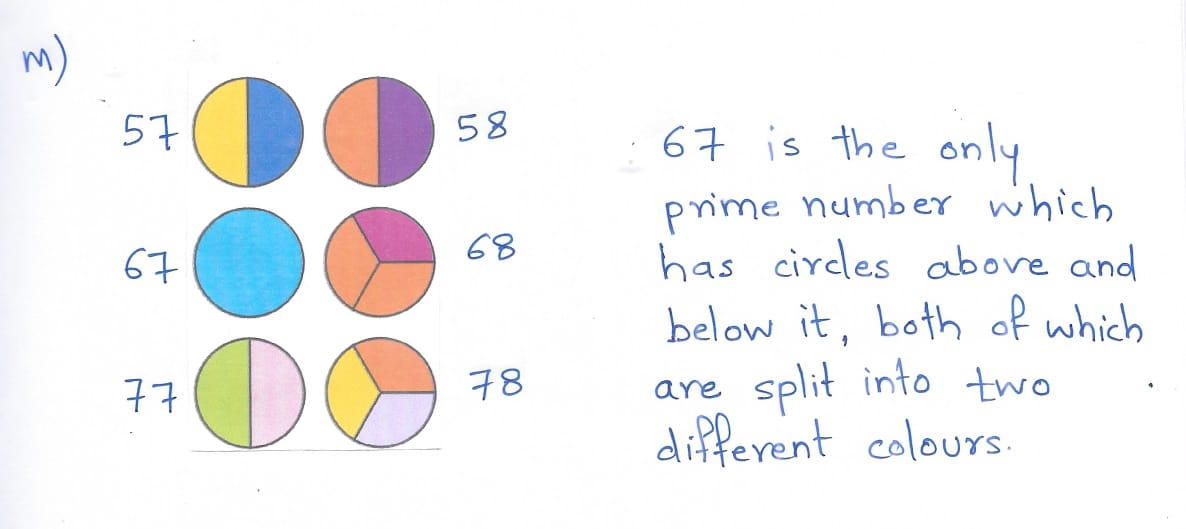 m)
57 58
67 68
77 78
67 is the only
prime number which
has circles above and
below it, both of which
are split into two
different colours.